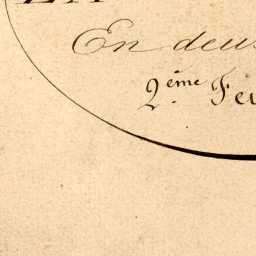 En deu
2.ème Feu